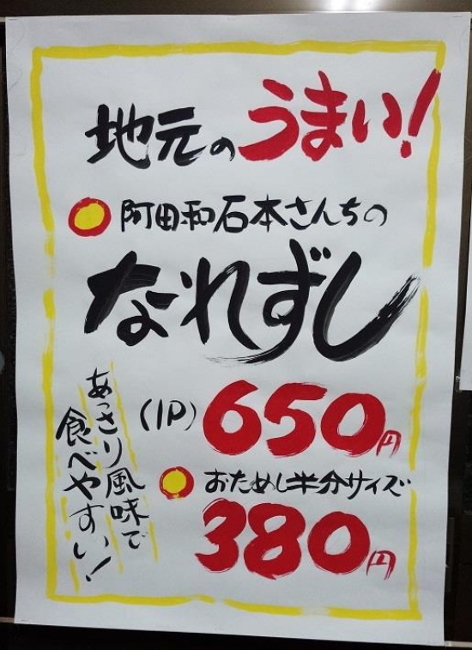 地元のうまい!
阿田和石本さんちの
なれずし
(1P) 650円
おためし半分サイズ
380円
あっさり風味で
食べやすい!